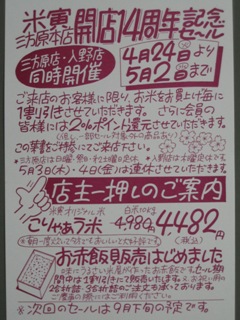 米寅 三方原本店 開店14周年記念セール
三方原店・入野店 同時開催
4月24日(火)より
5月2日(水)まで
ご来店のお客様に限り、お米をお買上げ毎に
1割引させていただきます。さらに会員の
皆様には2%ポイント還元させていただきます。
この葉書を持ってご来店下さい。
5月3日(木)・4日(金)は連休させていただきます
店主一押しのご案内
米寅オリジナル米 白米10kg
こりゃぁう米 4,980円 4,482円
(税込)
お赤飯販売はじめました
期間中は1割引にて販売いたします。
※次回のセールは9月下旬の予定です。